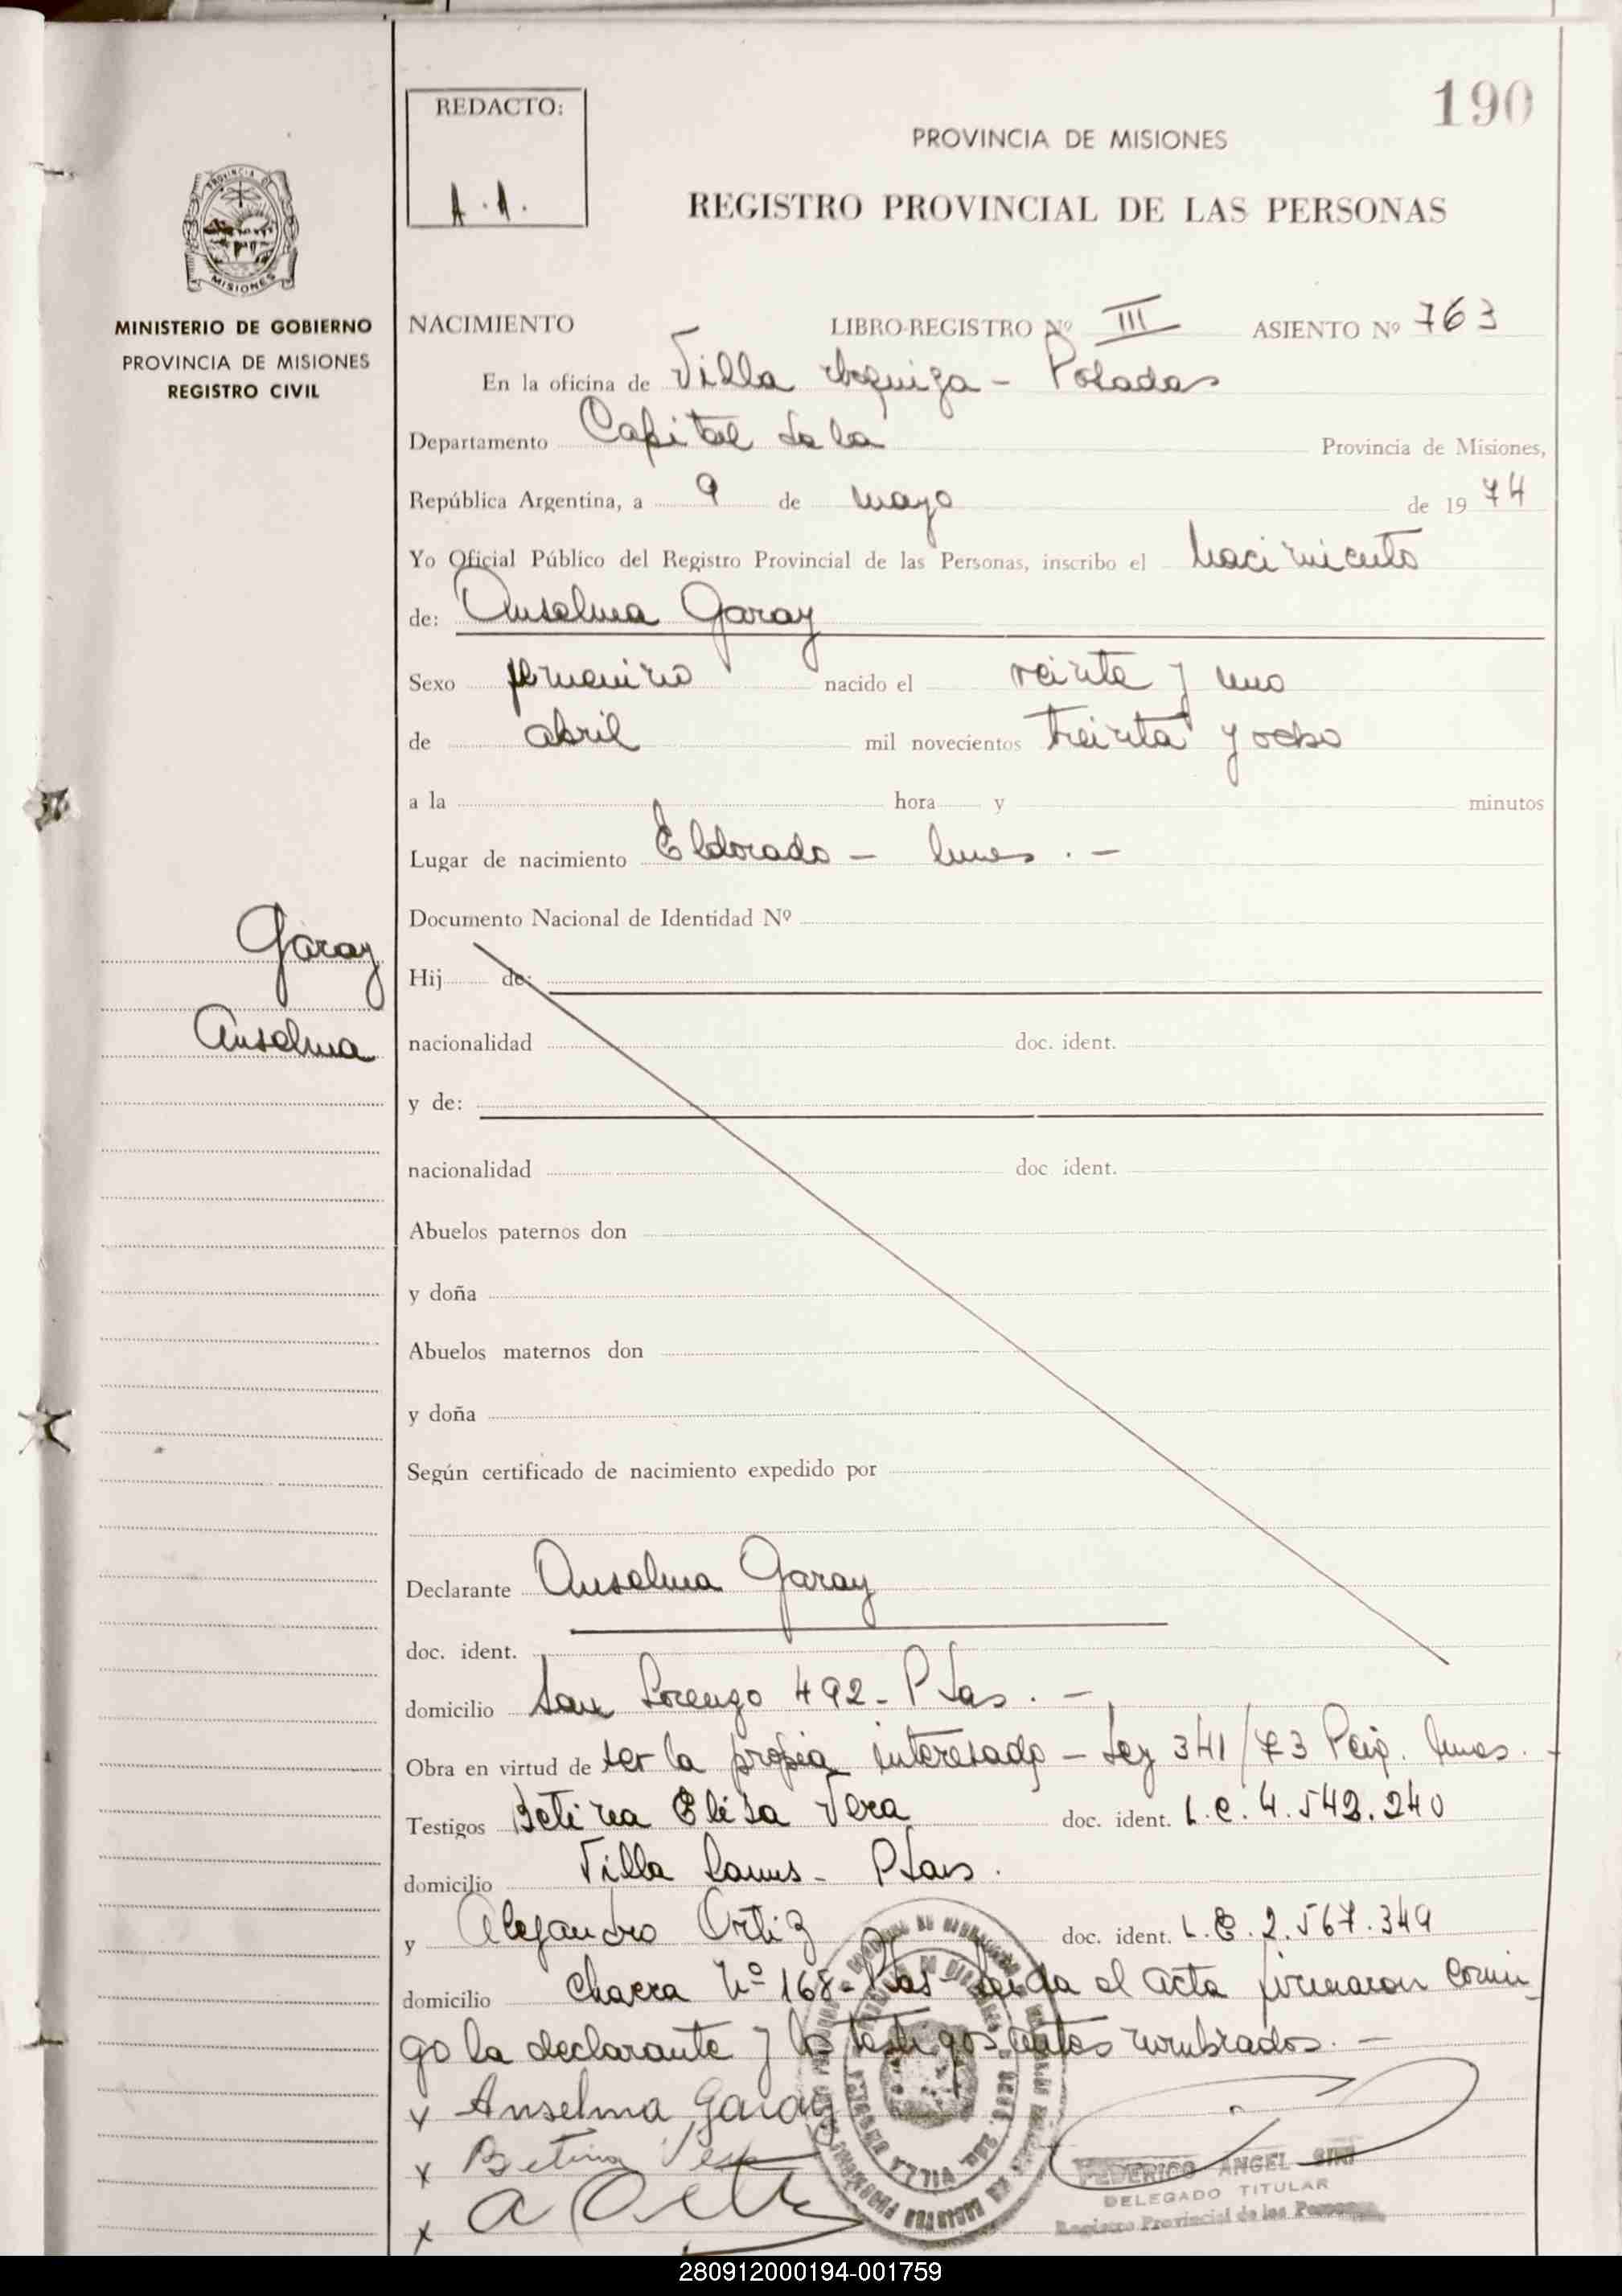 190
REDACTO:
A.A.
PROVINCIA DE MISIONES
REGISTRO PROVINCIAL DE LAS PERSONAS
PROVINCIA DE
MISIONES
MINISTERIO DE GOBIERNO
PROVINCIA DE MISIONES
REGISTRO CIVIL
NACIMIENTO LIBRO-REGISTRO Nº III ASIENTO Nº 763
En la oficina de Villa Urquiza - Posadas
Departamento Capital de la Provincia de Misiones,
República Argentina, a 9 de mayo de 1974
Yo Oficial Público del Registro Provincial de las Personas, inscribo el nacimiento
de: Anselma Garay
Sexo femenino nacido el veinte y uno
de abril mil novecientos treinta y ocho
a la hora y minutos
Lugar de nacimiento Eldorado -
Documento Nacional de Identidad Nº
Garay
Anselma
Hij de:
nacionalidad doc. ident.
y de:
nacionalidad doc ident.
Abuelos paternos don
y doña
Abuelos maternos don
y doña
Según certificado de nacimiento expedido por
Declarante Anselma Garay
doc. ident.
domicilio San Lorenzo 492 - Pdas. -
Obra en virtud de ser la propia interesada - Ley 341/73
Testigos Betina Elisa Vera doc. ident. L.C. 4.542.240
domicilio Villa Lanus - Pdas.
y Alejandro Ortiz doc. ident. L.E. 2.567.349
domicilio Chacra Nº 168 - Pdas - Leida el acta firmaron conmi_
go la declarante y los testigos antes nombrados. -
x Anselma Garay
x Betina Vera
x A Ortiz
FEDERICO ANGEL
DELEGADO TITULAR
Registro Provincial de las Personas
280912000194-001759